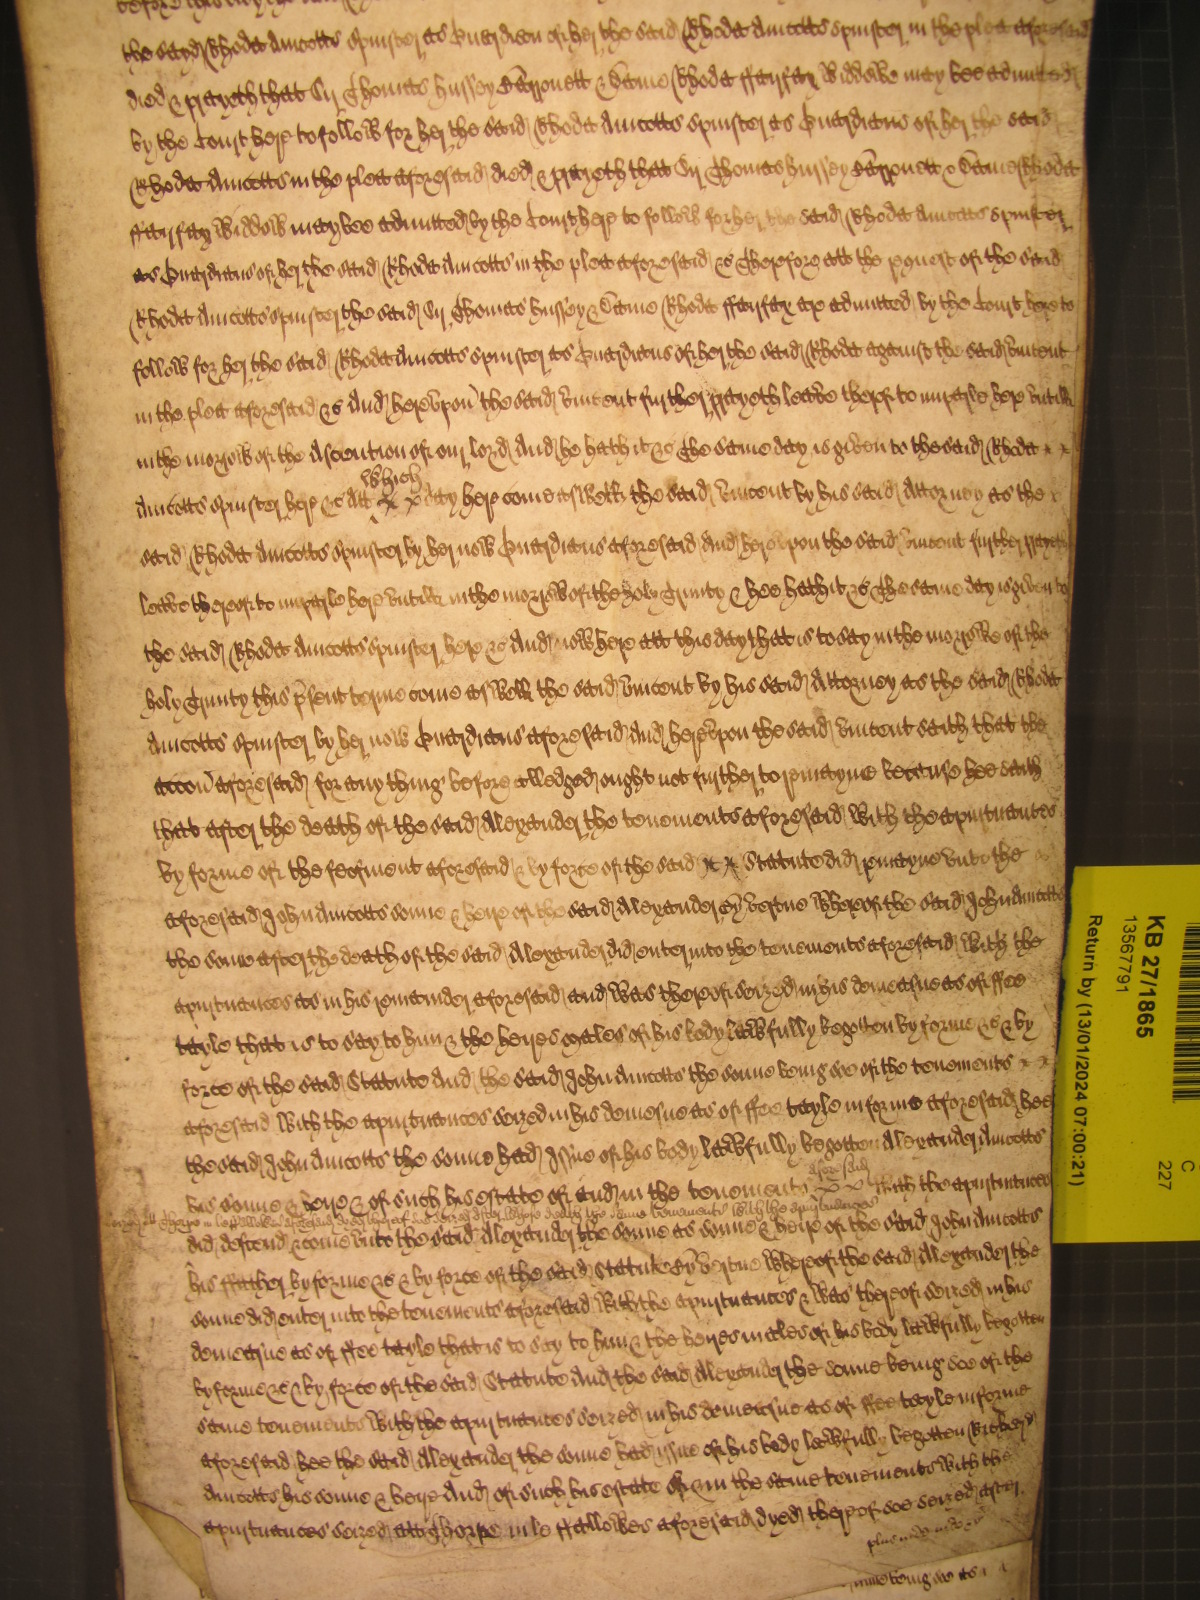 before this day the
the sayd Rhoda Amcotts spinster as Guardian of her the said Rhoda Amcotts spinster in the plea aforesaid
died & prayeth that Sir Thomas Hussey Barronett & Dame Rhoda ffairfax Widdowe may bee admitted
by the Court here to follow for her the said Rhoda Amcotts spinster as Guardians of her the said
Rhoda Amcotts in the plea aforesaid died & prayeth that Sir Thomas Hussey Barronett & Dame Rhoda
ffairfax Widdow may bee admitted by the Court here to follow for her the said Rhoda Amcotts spinster
as Guardians of her the said Rhoda Amcotts in the plea aforesaid &c Therefore att the request of the said
Rhoda Amcotts spinster the said Sir Thomas Hussey & Dame Rhoda ffairfax are admitted by the Court here to
follow for her the said Rhoda Amcotts spinster as Guardians of her the said Rhoda against the said Vincent
in the plea aforesaid &c And hereupon the said Vincent further prayeth leave thereof to imparle here untill
in the morrow of the Ascention of our Lord And he hath it &c The same day is given to the said Rhoda
Amcotts spinster here &c Att which day here come aswell the said Vincent by his said Attorney as the
said Rhoda Amcotts spinster by her now Guardians aforesaid And hereupon the said Vincent further prayeth
leave thereof to imparle here untill in the morrow of the holy Trinity & hee hath it &c The same day is given to
the said Rhoda Amcotts spinster here &c And now here att this day that is to say in the morrowe of the
holy Trinity this p'sent terme come aswell the said Vincent by his said Attorney as the said Rhoda
Amcotts spinster by her now Guardians aforesaid And hereupon the said Vincent saith that the
accon aforesaid for any thing before alledged ought not further to remayne because hee saith
that after the death of the said Alexander the tenements aforesaid with the apurtenances
by forme of the feofment aforesaid & by force of the said Statute did remayne unto the
aforesaid John Amcotts sonne & heire of the said Alexander By vertue whereof the said John Amcotts
the sonne after the death of the said Alexander did enter into the tenements aforesaid with the
apurtenances as in his remainder aforesaid and was thereof seized in his demesne as of ffee
tayle that is to say to him & the heires males of his body lawfully begotten by forme &c & by
force of the said Statute And the said John Amcotts the sonne being soe of the tenements
aforesaid with the apurtenances seized in his demesne as of ffee tayle in forme aforesaid hee
the said John Amcotts the sonne had Issue of his body lawfully begotten Alexander Amcotts
his sonne & heire & of such his estate of and in the tenements aforesaid with the apurtenances
att Thorpe in le ffallowes aforesaid dyed thereof soe seized after whose death the same tenements with the apurtenances
did descend & come unto the said Alexander the sonne as sonne & heire of the said John Amcotts
his ffather by forme &c & by force of the said Statute By vertue whereof the said Alexander the
sonne did enter into the tenements aforesaid with the apurtenances & was thereof seized in his
demesne as of ffee tayle that is to say to him & the heires males of his body lawfully begotten
by forme &c & by force of the said Statute And the said Alexander the sonne being soe of the
same tenements with the apurtenances seized in his demesne as of ffee tayle in forme
aforesaid hee the said Alexander the sonne had issue of his body lawfully begotten Richard
Amcotts his sonne & heire And of such his estate of & in the same tenements with the
apurtenances seized att Thorpe in le ffallowes aforesaid dyed thereof soe seized after
being soe as
KB 27/1865
13567791
Return by (13/01/2024 07:00:21)
C
227